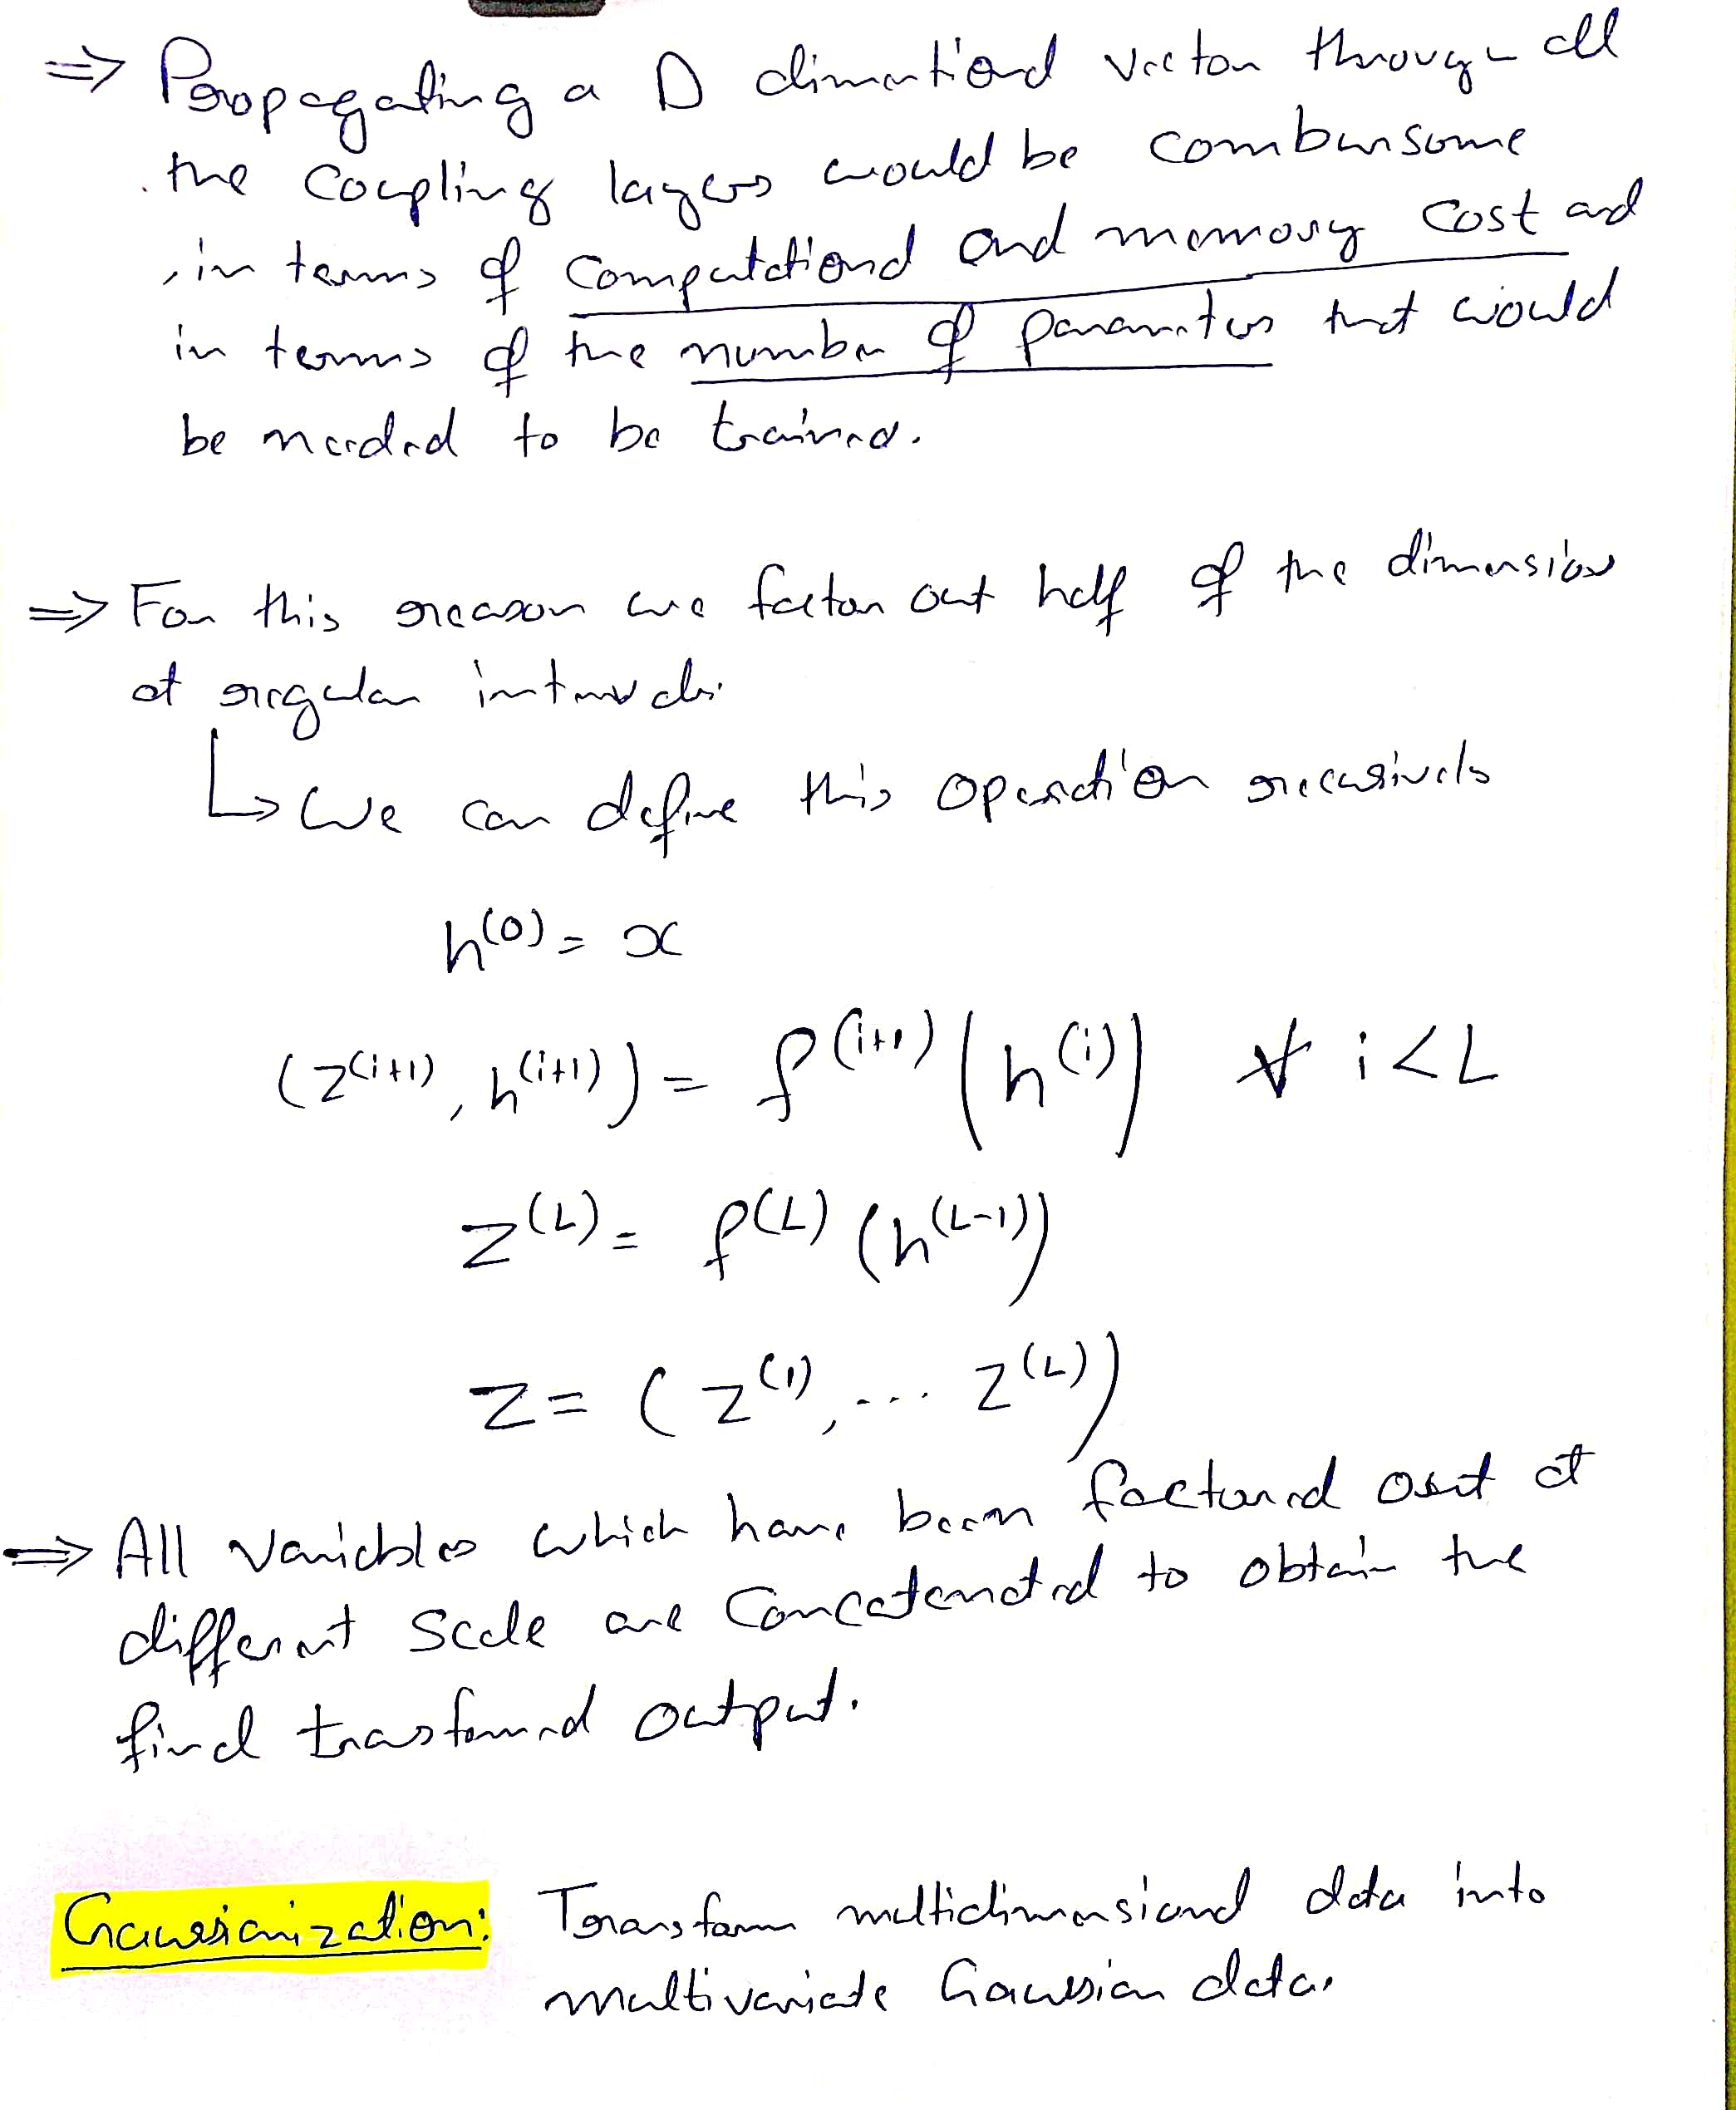 ⇒ Propagating a D dimentional vector through all
the coupling layers would be combursome
, in terms of computational and memory cost and
in terms of the number of parameters that would
be needed to be trained.
⇒ For this reason we factor out half of the dimensions
at regular intervals.
↳ We can define this operation recursively
h^(0) = x
(z^(i+1), h^(i+1)) = f^(i+1) (h^(i)) ∀ i < L
z^(L) = f^(L) (h^(L-1))
z = (z^(1), ... z^(L))
⇒ All variables which have been factored out at
different scale are concatenated to obtain the
final trasformed output.
Gaussianization: Transform multidimensional data into
multivariate Gaussian data.